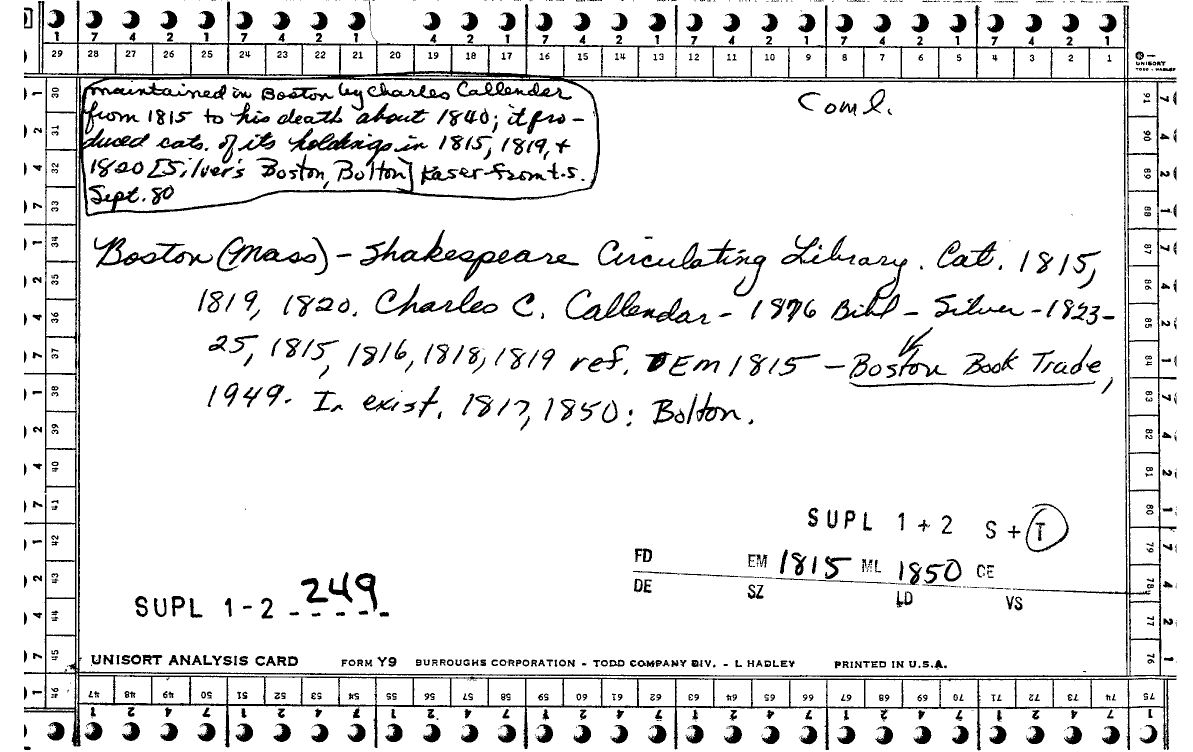 29 28 27 26 25 24 23 22 21 20 19 18 17 16 15 14 13 12 11 10 9 8 7 6 5 4 3 2 1
UNISORT
TODD - HADLEY
maintained in Boston by Charles Callender
from 1815 to his death about 1840; it pro-
duced cats. of its holdings in 1815, 1819, +
1820 [Silver's Boston, Bolton] Kaser from t.s.
Sept. 80
Coml.
Boston (Mass) - Shakespeare Circulating Library. Cat. 1815,
1819, 1820. Charles C. Callendar - 1876 Bibl - Silver - 1823-
25, 1815, 1816, 1818, 1819 ref. DEm 1815 - Boston Book Trade,
1949. In exist. 1817, 1850: Bolton.
SUPL 1+2 S+T
FD EM 1815 ML 1850 CE
DE SZ LD VS
SUPL 1-2 249
UNISORT ANALYSIS CARD FORM Y9 BURROUGHS CORPORATION - TODD COMPANY DIV. - L HADLEY PRINTED IN U.S.A.
46 47 48 49 50 51 52 53 54 55 56 57 58 59 60 61 62 63 64 65 66 67 68 69 70 71 72 73 74 75